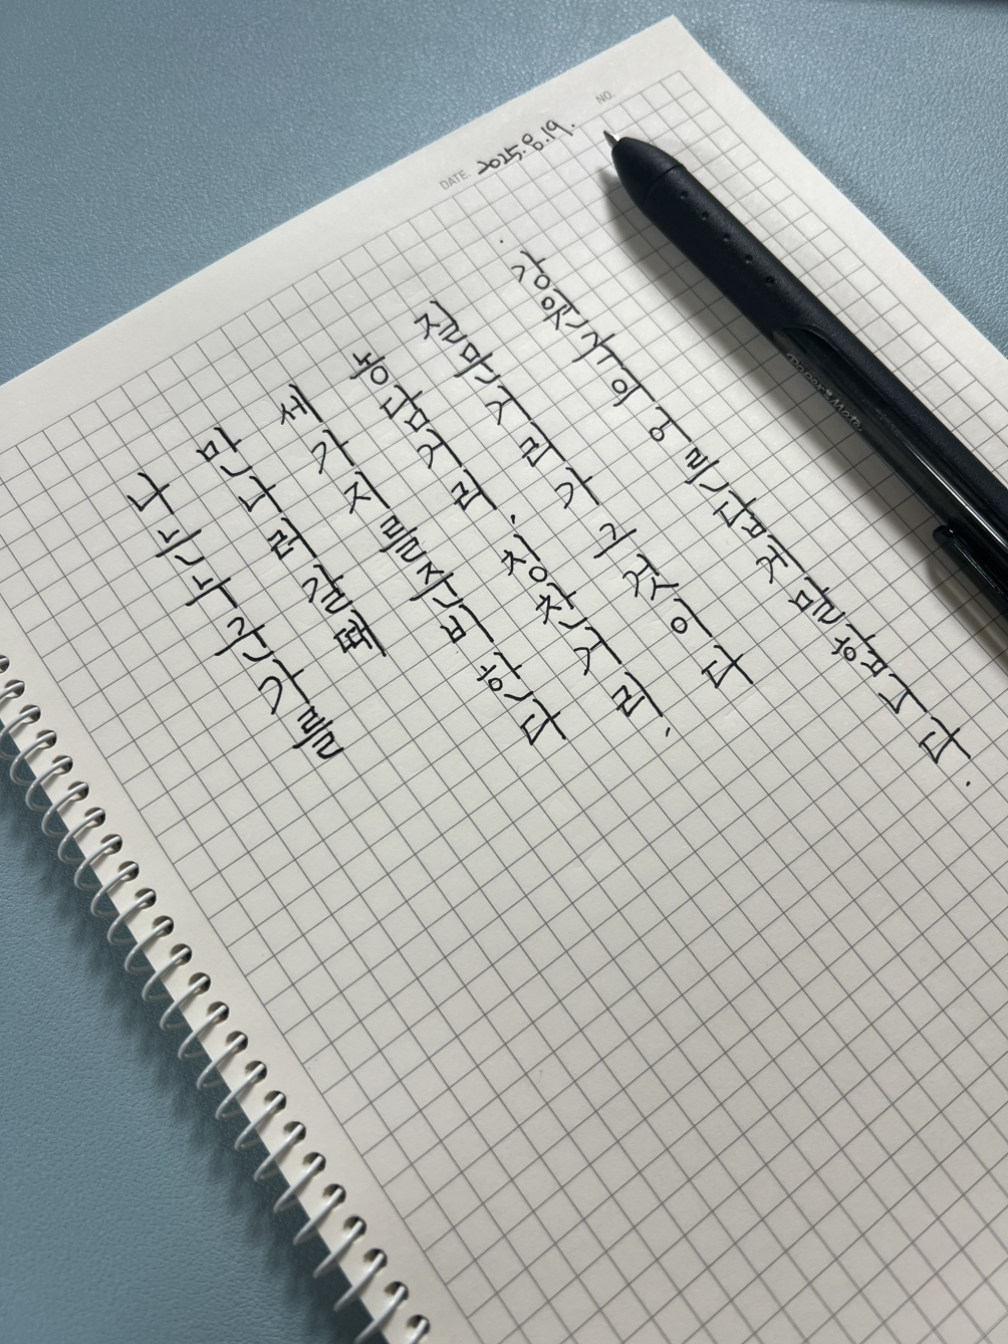 DATE 2025.8.19.
NO.
나는 누군가를
만나러 갈 때
세 가지를 준비한다
농담거리, 칭찬거리,
질문거리가 그것이다
강원국의 어른답게 말합니다.
Paper Mate